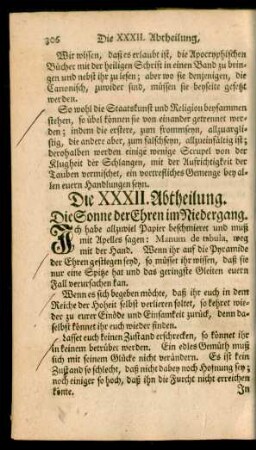 306 Die XXXII. Abtheilung,
Wir wissen, daß es erlaubt ist, die Apocryphischen
Bücher mit der heiligen Schrift in einen Band zu brin-
gen und nebst ihr zu lesen; aber wo sie denjenigen, die
Canonisch, zuwider sind, müssen sie beyseite gesetzt
werden.
So wohl die Staatskunst und Religion beysammen
stehen, so übel können sie von einander getrennet wer-
den; indem die erstere, zum frommseyn, allzuarglis-
tig, die andere aber, zum falschseyn, allzueinfältig ist;
derohalben werden einige wenige Scrupel von der
Klugheit der Schlangen, mit der Aufrichtigkeit der
Tauben vermischet, ein vortrefliches Gemenge bey al-
len euern Handlungen seyn.
Die XXXII. Abtheilung.
Die Sonne der Ehren im Niedergang.
Ich habe allzuviel Papier beschmieret und muß
mit Apelles sagen: Manum de tabula, weg
mit der Hand. Wenn ihr auf die Pyramide
der Ehren gestiegen seyd, so müsset ihr wissen, daß sie
nur eine Spitze hat und das geringste Gleiten euern
Fall verursachen kan.
Wenn es sich begeben möchte, daß ihr euch in dem
Reiche der Hoheit selbst verlieren soltet, so kehret wie-
der zu eurer Einöde und Einsamkeit zurück, denn da-
selbst könnet ihr euch wieder finden.
Lasset euch keinen Zustand erschrecken, so könnet ihr
in keinem betrübet werden. Ein edles Gemüth muß
sich mit seinem Glücke nicht verändern. Es ist kein
Zustand so schlecht, daß nicht dabey noch Hofnung sey;
noch einiger so hoch, daß ihn die Furcht nicht erreichen
könte. In